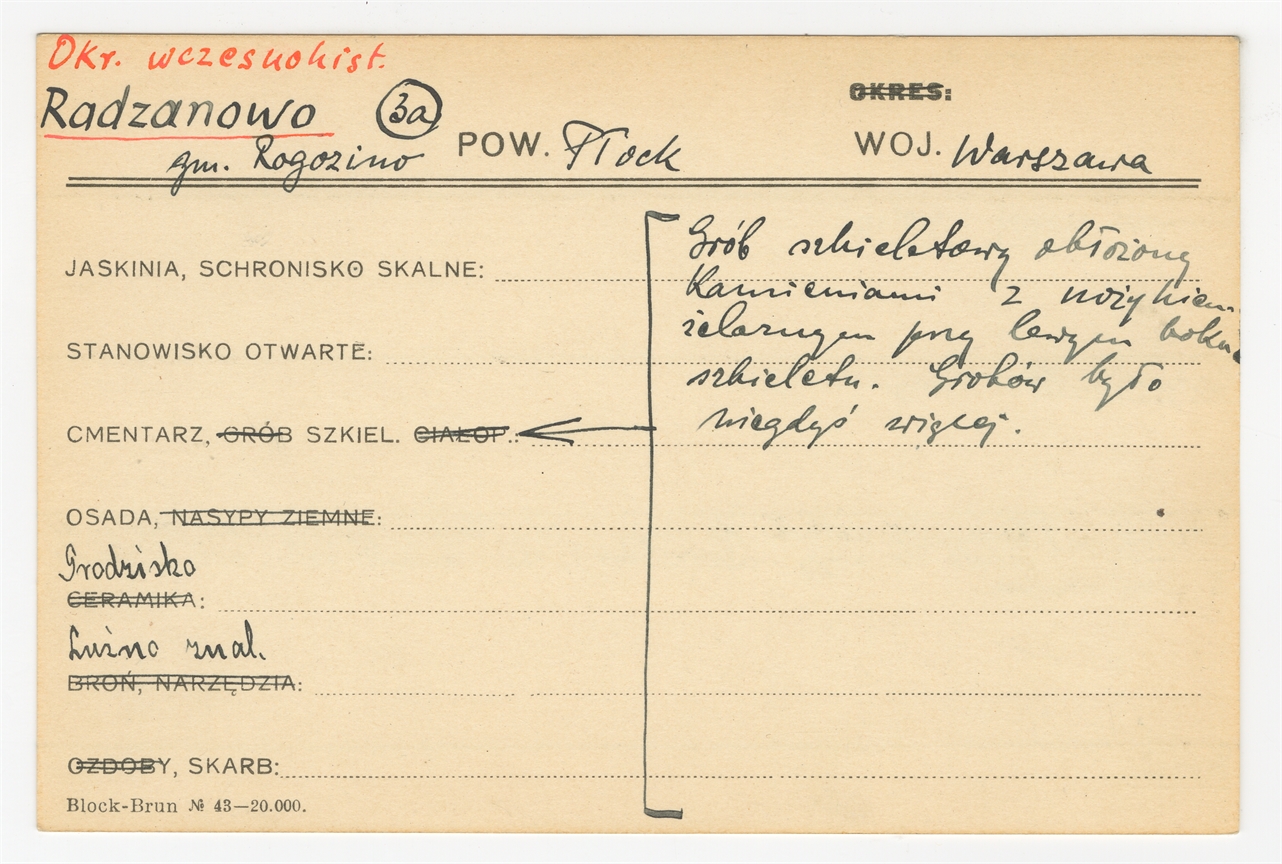 Okr. wczesnohist.
Radzanowo 3a
OKRES:
gm. Rogozino POW. Płock WOJ. Warszawa
Grób szkieletowy obłożony
JASKINIA, SCHRONISKO SKALNE:
kamieniami z nożykiem
żelaznym przy lewym boku
STANOWISKO OTWARTE:
szkieletu. Grobów było
niegdyś więcej.
CMENTARZ, GRÓB SZKIEL. CIAŁOP.:
OSADA, NASYPY ZIEMNE:
Grodzisko
CERAMIKA:
Luźno znal.
BROŃ, NARZĘDZIA:
OZDOBY, SKARB:
Block-Brun № 43—20.000.